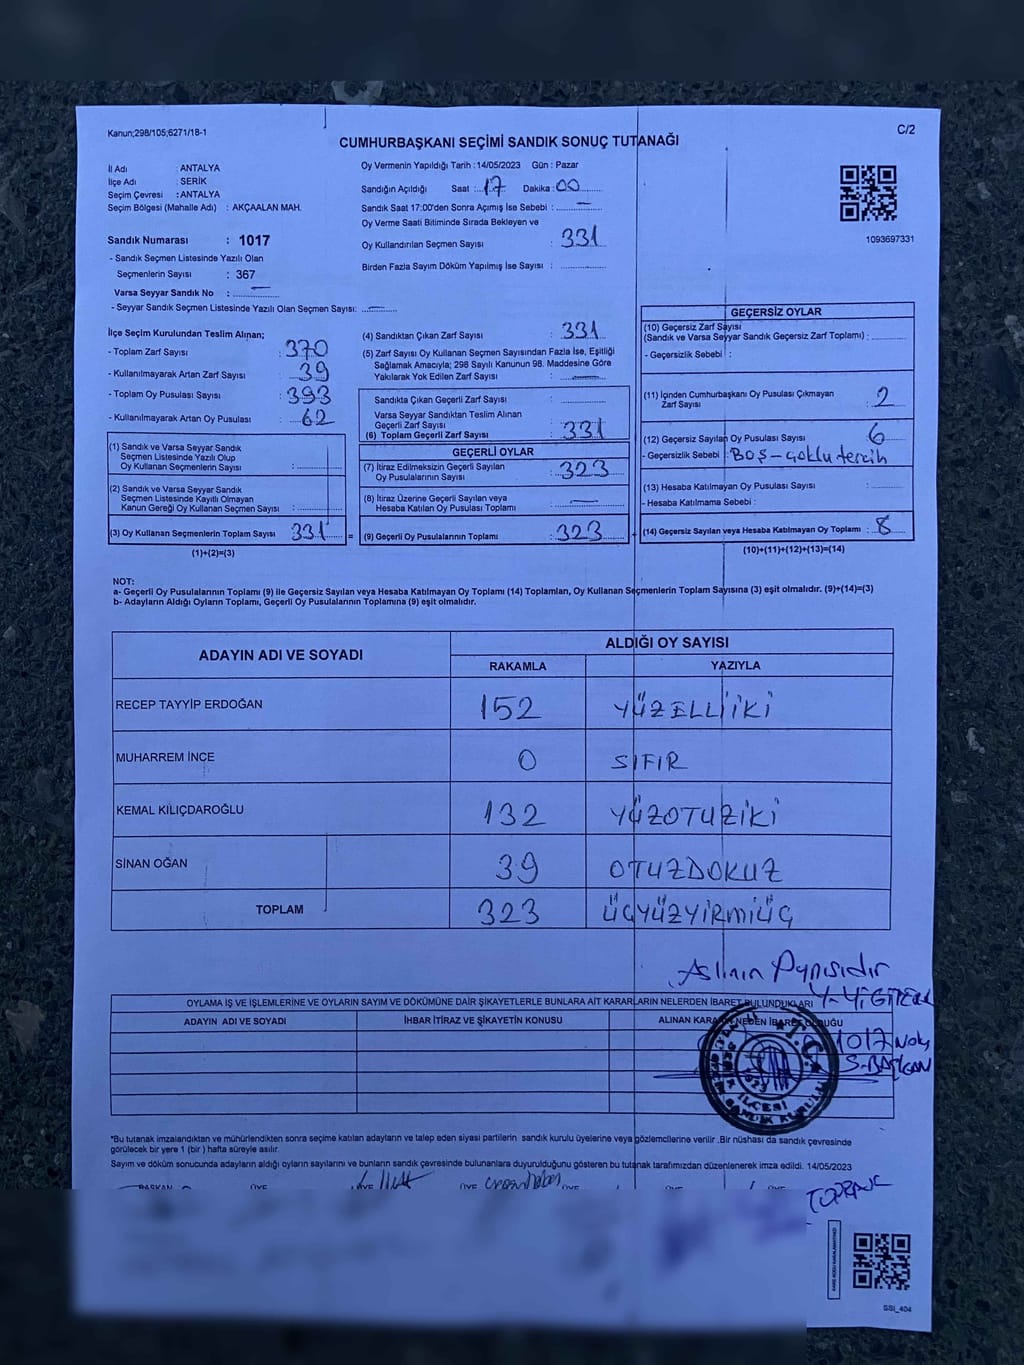 Kanun;298/105;6271/18-1
C/2
CUMHURBAŞKANI SEÇİMİ SANDIK SONUÇ TUTANAĞI
İl Adı : ANTALYA
İlçe Adı : SERİK
Seçim Çevresi : ANTALYA
Seçim Bölgesi (Mahalle Adı) : AKÇAALAN MAH.
Oy Vermenin Yapıldığı Tarih : 14/05/2023 Gün : Pazar
Sandığın Açıldığı Saat : 17 Dakika : 00
Sandık Saat 17:00'den Sonra Açımış İse Sebebi : —
Oy Verme Saati Bitiminde Sırada Bekleyen ve
Oy Kullandırılan Seçmen Sayısı : 331
Birden Fazla Sayım Döküm Yapılmış İse Sayısı :
1093697331
Sandık Numarası : 1017
- Sandık Seçmen Listesinde Yazılı Olan
Seçmenlerin Sayısı : 367
Varsa Seyyar Sandık No : —
- Seyyar Sandık Seçmen Listesinde Yazılı Olan Seçmen Sayısı: —
İlçe Seçim Kurulundan Teslim Alınan;
- Toplam Zarf Sayısı : 370
- Kullanılmayarak Artan Zarf Sayısı : 39
- Toplam Oy Pusulası Sayısı : 393
- Kullanılmayarak Artan Oy Pusulası : 62
(1) Sandık ve Varsa Seyyar Sandık
Seçmen Listesinde Yazılı Olup
Oy Kullanan Seçmenlerin Sayısı :
(2) Sandık ve Varsa Seyyar Sandık
Seçmen Listesinde Kayıtlı Olmayan
Kanun Gereği Oy Kullanan Seçmen Sayısı :
(3) Oy Kullanan Seçmenlerin Toplam Sayısı : 331
(1)+(2)=(3)
(4) Sandıktan Çıkan Zarf Sayısı : 331
(5) Zarf Sayısı Oy Kullanan Seçmen Sayısından Fazla İse, Eşitliği
Sağlamak Amacıyla; 298 Sayılı Kanunun 98. Maddesine Göre
Yakılarak Yok Edilen Zarf Sayısı : —
Sandıkta Çıkan Geçerli Zarf Sayısı :
Varsa Seyyar Sandıktan Teslim Alınan
Geçerli Zarf Sayısı :
(6) Toplam Geçerli Zarf Sayısı : 331
GEÇERLİ OYLAR
(7) İtiraz Edilmeksizin Geçerli Sayılan
Oy Pusulalarının Sayısı : 323
(8) İtiraz Üzerine Geçerli Sayılan veya
Hesaba Katılan Oy Pusulası Toplamı : —
= (9) Geçerli Oy Pusulalarının Toplamı : 323
GEÇERSİZ OYLAR
(10) Geçersiz Zarf Sayısı
(Sandık ve Varsa Seyyar Sandık Geçersiz Zarf Toplamı) :
- Geçersizlik Sebebi :
(11) İçinden Cumhurbaşkanı Oy Pusulası Çıkmayan
Zarf Sayısı : 2
(12) Geçersiz Sayılan Oy Pusulası Sayısı : 6
- Geçersizlik Sebebi : BOŞ-çoklu tercih
(13) Hesaba Katılmayan Oy Pusulası Sayısı :
- Hesaba Katılmama Sebebi :
(14) Geçersiz Sayılan veya Hesaba Katılmayan Oy Toplamı : 8
(10)+(11)+(12)+(13)=(14)
NOT:
a- Geçerli Oy Pusulalarının Toplamı (9) ile Geçersiz Sayılan veya Hesaba Katılmayan Oy Toplamı (14) Toplamları, Oy Kullanan Seçmenlerin Toplam Sayısına (3) eşit olmalıdır. (9)+(14)=(3)
b- Adayların Aldığı Oyların Toplamı, Geçerli Oy Pusulalarının Toplamına (9) eşit olmalıdır.
ADAYIN ADI VE SOYADI
ALDIĞI OY SAYISI
RAKAMLA YAZIYLA
RECEP TAYYİP ERDOĞAN 152 YÜZELLİİKİ
MUHARREM İNCE 0 SIFIR
KEMAL KILIÇDAROĞLU 132 YÜZOTUZİKİ
SİNAN OĞAN 39 OTUZDOKUZ
TOPLAM 323 ÜÇYÜZYİRMİÜÇ
Aslının Aynısıdır
OYLAMA İŞ VE İŞLEMLERİNE VE OYLARIN SAYIM VE DÖKÜMÜNE DAİR ŞİKAYETLERLE BUNLARA AİT KARARLARIN NELERDEN İBARET BULUNDUKLARI
ADAYIN ADI VE SOYADI İHBAR İTİRAZ VE ŞİKAYETİN KONUSU ALINAN KARARIN NEDEN İBARET OLDUĞU
1017 Nolu
S-BAŞKAN
T.C.
*Bu tutanak imzalandıktan ve mühürlendikten sonra seçime katılan adayların ve talep eden siyasi partilerin sandık kurulu üyelerine veya gözlemcilerine verilir .Bir nüshası da sandık çevresinde
görülecek bir yere 1 (bir ) hafta süreyle asılır.
Sayım ve döküm sonucunda adayların aldığı oyların sayılarını ve bunların sandık çevresinde bulunanlara duyurulduğunu gösteren bu tutanak tarafımızdan düzenlenerek imza edildi. 14/05/2023
BAŞKAN ÜYE ÜYE ÜYE ÜYE ÜYE ÜYE
TOPRAK
SSI_404